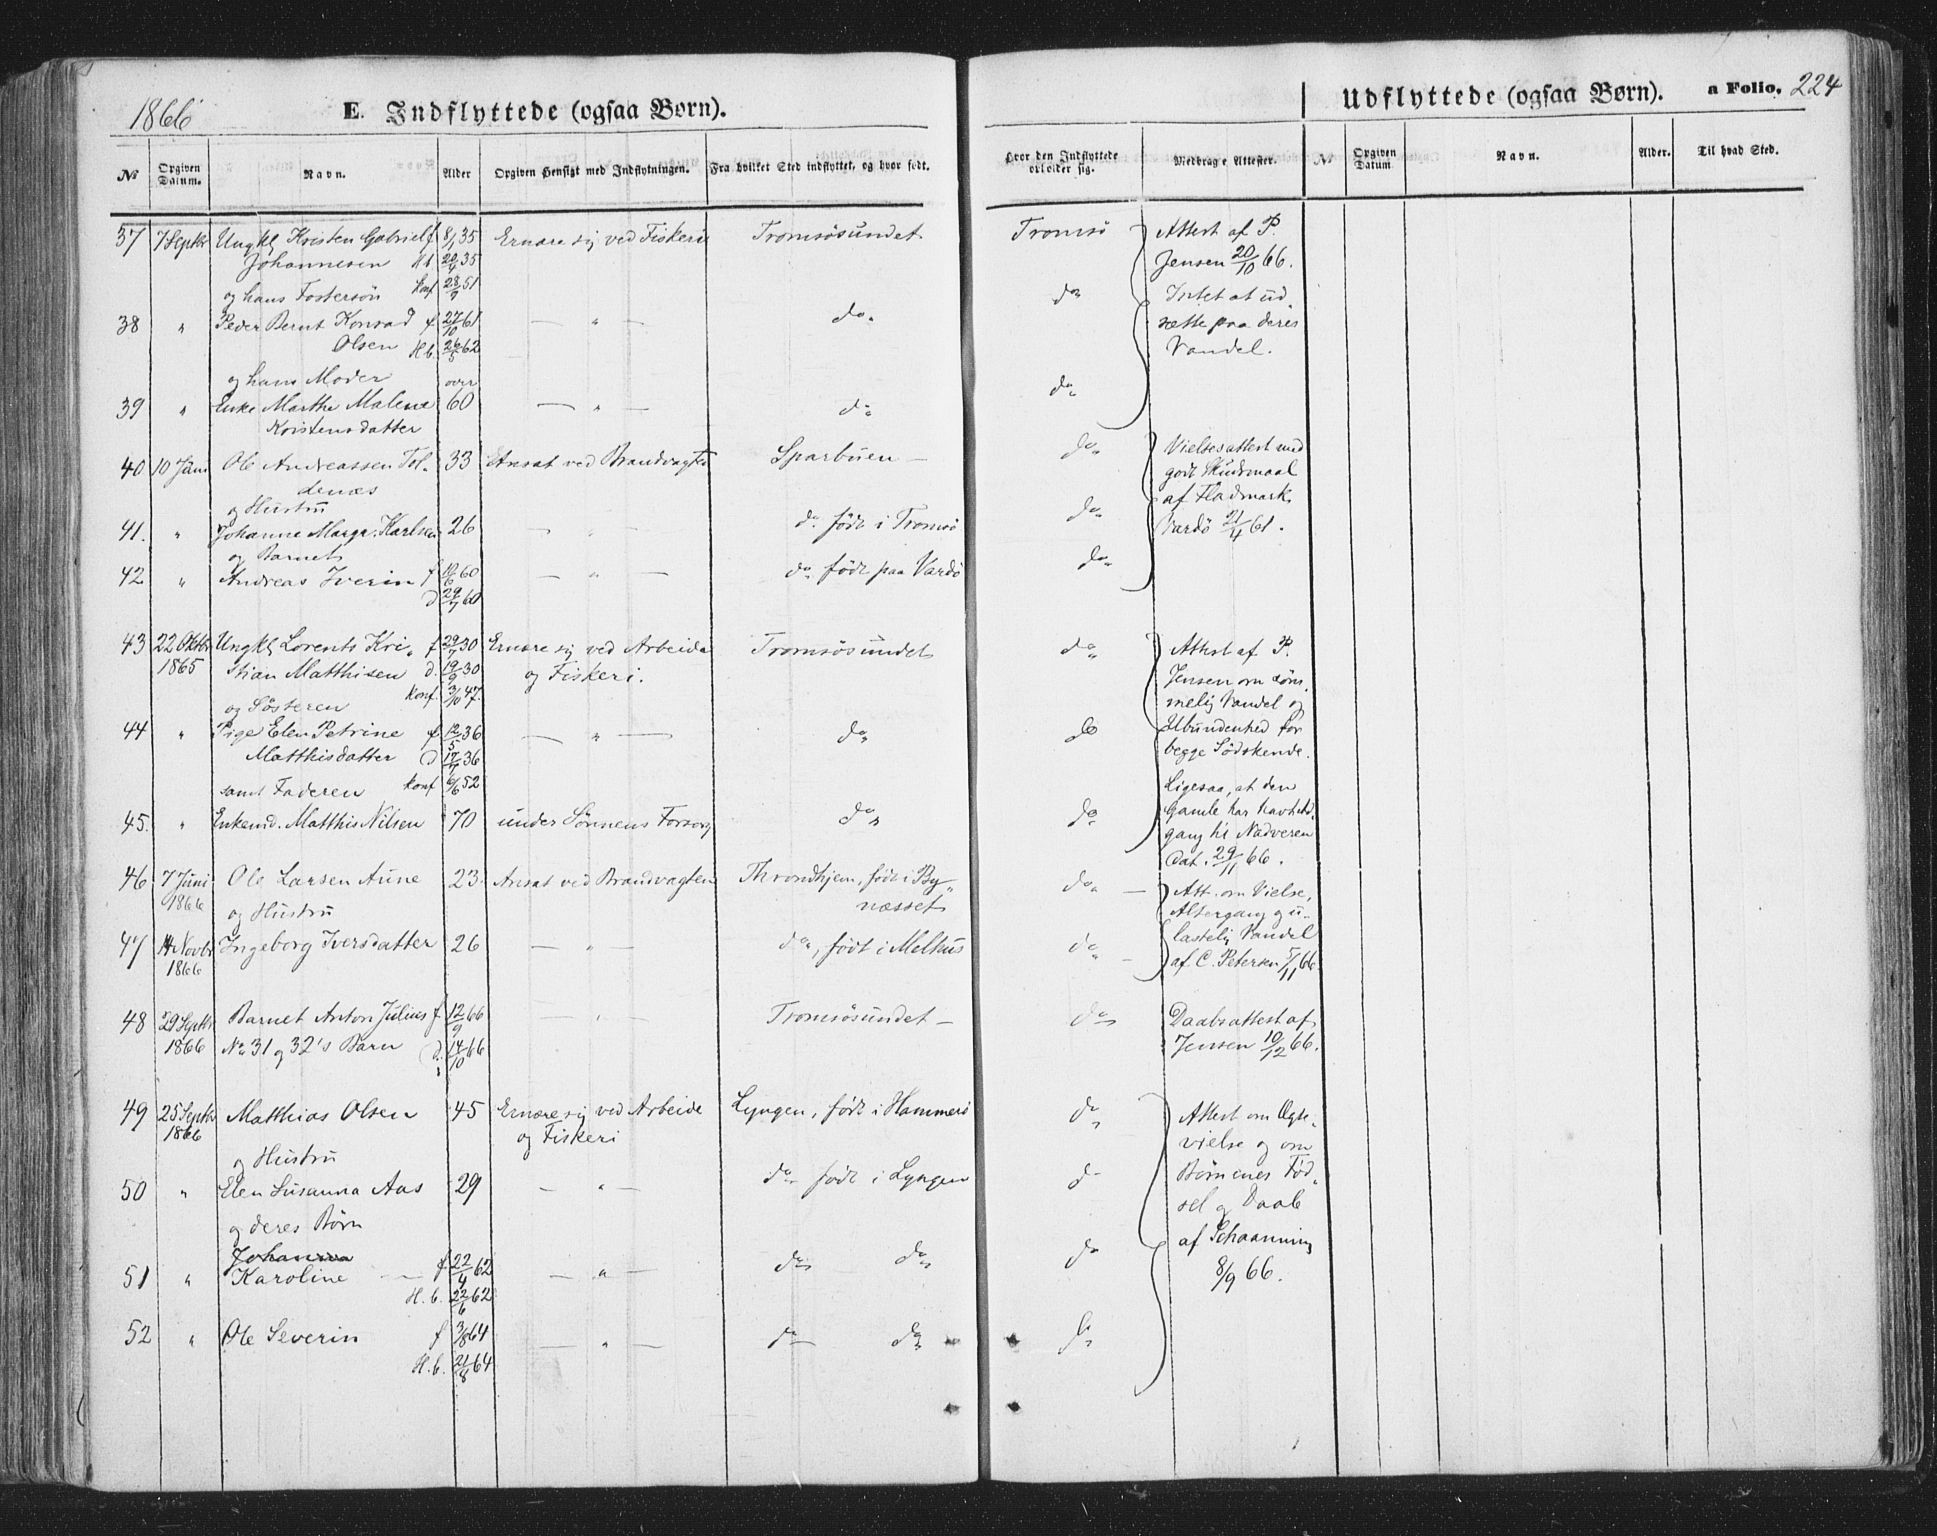 1866
E. Indflyttede (ogsaa Børn).
Udflyttede (ogsaa Børn).
a Folio. 224
No
Opgiven Datum.
Navn.
Alder
Opgiven Hensigt med Indflytningen.
Fra hvilket Sted indflyttet, og hvor født.
Hvor den Indflyttede opholder sig.
Medbragte Attester.
No
Opgiven Datum
Navn.
Alder.
Til hvad Sted.
37 7 Septbr Ungkl Kristen Gabriel f 8/1 35 Ernære sig ved Fiskeri Tromsøsundet Tromsø Attest af P.
Johannesen H.b. 20/4 35 Jensen 20/10 66.
og hans Fostersøn Konf 28/9 51 do Intet at ud-
38 " Peder Bernt Konrad f 27/10 61 — " — do sætte paa deres
Olsen H.b. 26/5 62 Vandel.
og hans Moder over do
39 " Enke Marthe Malene 60 — " — do
Kristensdatter
40 10 Juni Ole Andreassen Tol- 33 Ansat ved Brandvagten Sparbuen — do Vielsesattest med
denæs godt Skudsmaal
og Hustru af Fladmark
41. " Johanne Margr. Karlsen 26 — " — do født i Tromsø do Vardö 21/4 61.
og Barnet
42 " Andreas Iverin f 10/6 60 — " — do født paa Vardö do
d 29/7 60
43 22 Oktbr Ungkl Lorents Kri- f 29/7 30 Ernære sig ved Arbeide Tromsøsundet do Attest af P.
1865 stian Matthisen d. 19/9 30 og Fiskeri. Jensen om søm-
Konf. 3/10 47. melig Vandel og
og Søsteren Ubundenhed for
44 " Pige Elen Petrine f 12/5 36 — " — do do begge Södskende.
Matthisdatter d 17/7 36
samt Faderen Konf 6/6 52 Ligesaa, at den
45. " Enkemd. Matthis Nilsen 70 under Sønnens Forsorg do do Gamle har havt Ad-
gang til Nadveren
dat. 29/11 66.
46 7 Juni Ole Larsen Aune 23. Ansat ved Brandvagten Throndhjem, født i By- do — Att. om Vielse,
1866 og Hustru næsset Altergang og u-
47 14 Novbr Ingeborg Iversdatter 26 — " — do, født i Melhus do — lastelig Vandel
1866 af C. Petersen 5/11 66.
48 29 Septbr Barnet Anton Julius f 12/9 66 — " — Tromsøsundet — do Daabsattest af
1866 No 31 og 32's Barn d. 14/10 66 Jensen 10/12 66.
49 25 Septbr Matthias Olsen 45 Ernære sig ved Arbeide Lyngen, født i Hammerø do Attest om Ægte-
1866 og Fiskeri vielse og om
og Hustru Børnenes Fød-
50 " Elen Susanna Aas 29 — " — do født i Lyngen do sel og Daab
og deres Børn af Schaanning
Johanna
51 " Karoline f 22/4 62 — " — do do do 8/9 66.
H.b. 22/6 62
52 " Ole Severin f 3/8 64 — " — do do do
H.b. 21/8 64